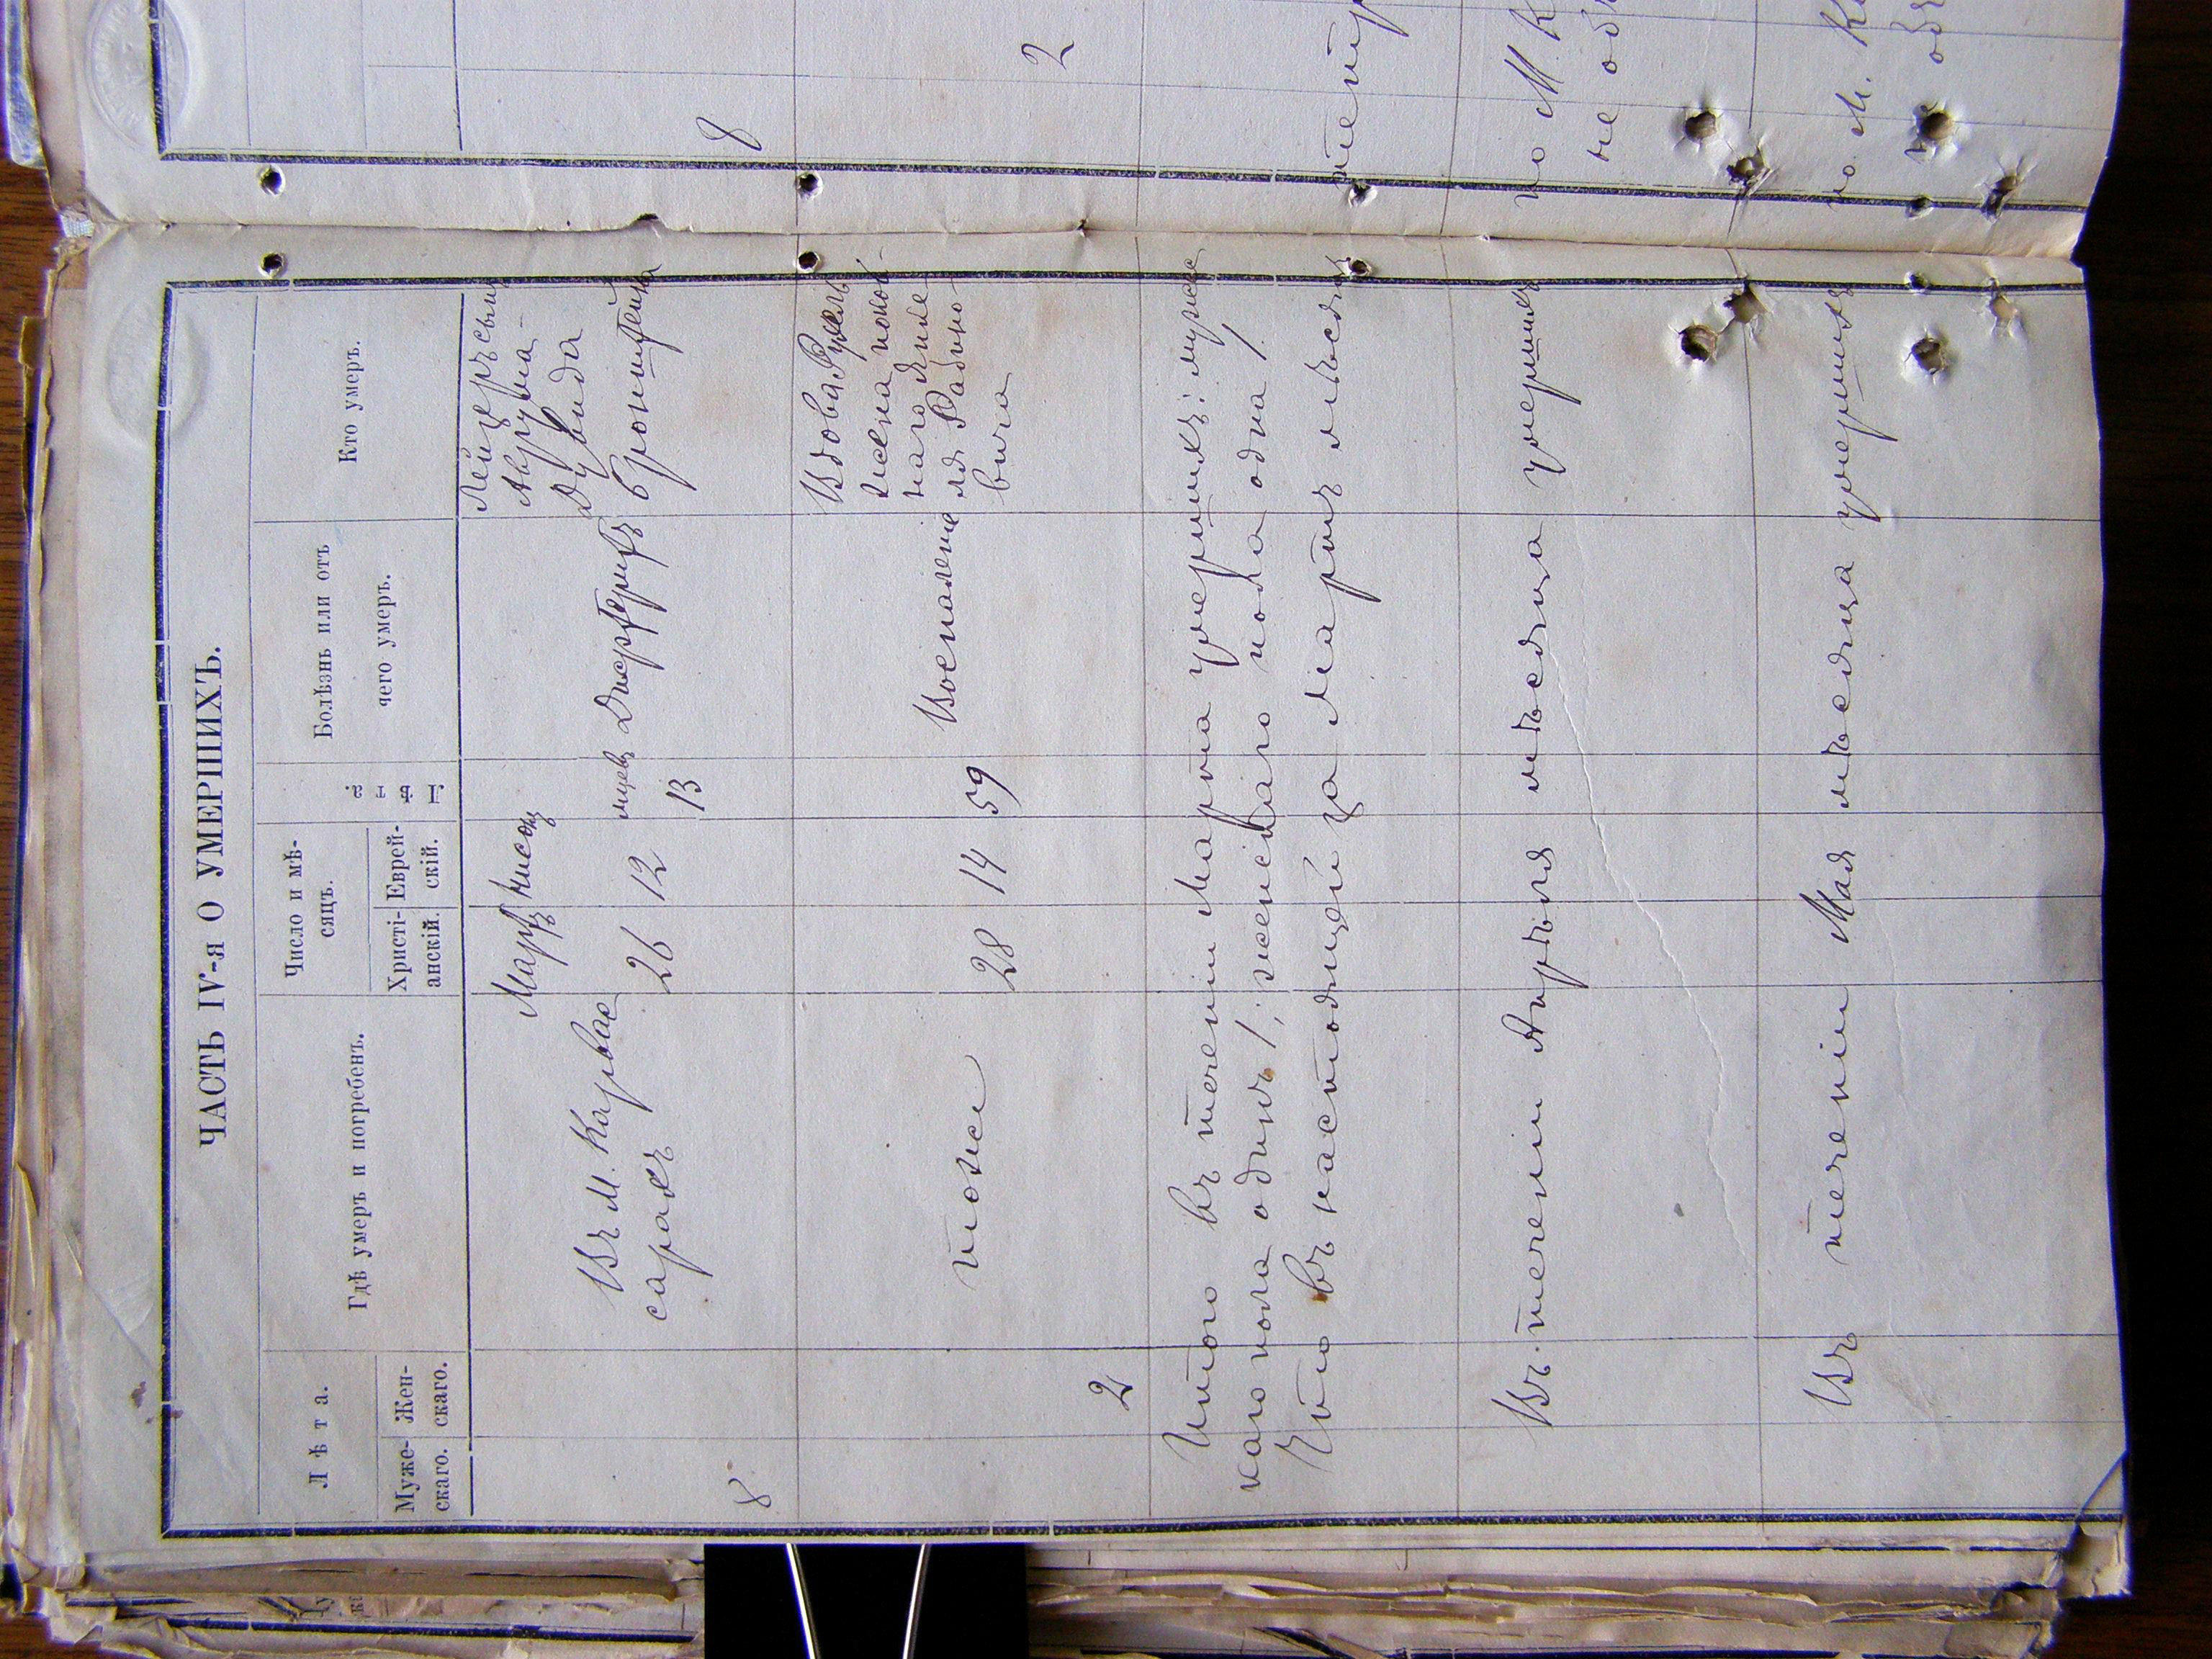 ЧАСТЬ IV-я О УМЕРШИХЪ.
Лѣта.
Муже-
скаго.
Жен-
скаго.
Гдѣ умеръ и погребенъ.
Число и мѣ-
сяцъ.
Христі-
анскій.
Еврей-
скій.
Лѣта.
Болѣзнь или отъ
чего умеръ.
Кто умеръ.
8
Въ М. Каувас
сарахъ
Мартъ
26
Нисонъ
12
мцевъ
13
Дисфтеритъ
Лейзеръ сынъ
Аврума-
Дувида
Бронштейна
2
тоже
28
14
59
Воспаление
Вдова
жена покой-
наго
ля Рабино-
вича
Итого въ теченіи Марта умершихъ: мужес
каго пола одинъ 1; женскаго пола одна 1.
Что въ настоящей за Мартъ мѣсяцъ
Въ теченіи Апрѣля мѣсяца умершихъ
Въ теченіи Мая мѣсяца умершихъ
8
2
по М. К
не об
по М. К